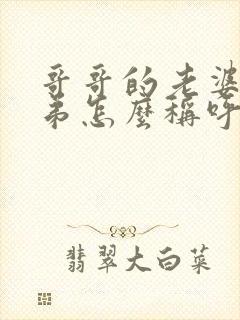 哥哥的老婆
弟怎麼稱呼
翡翠大白菜